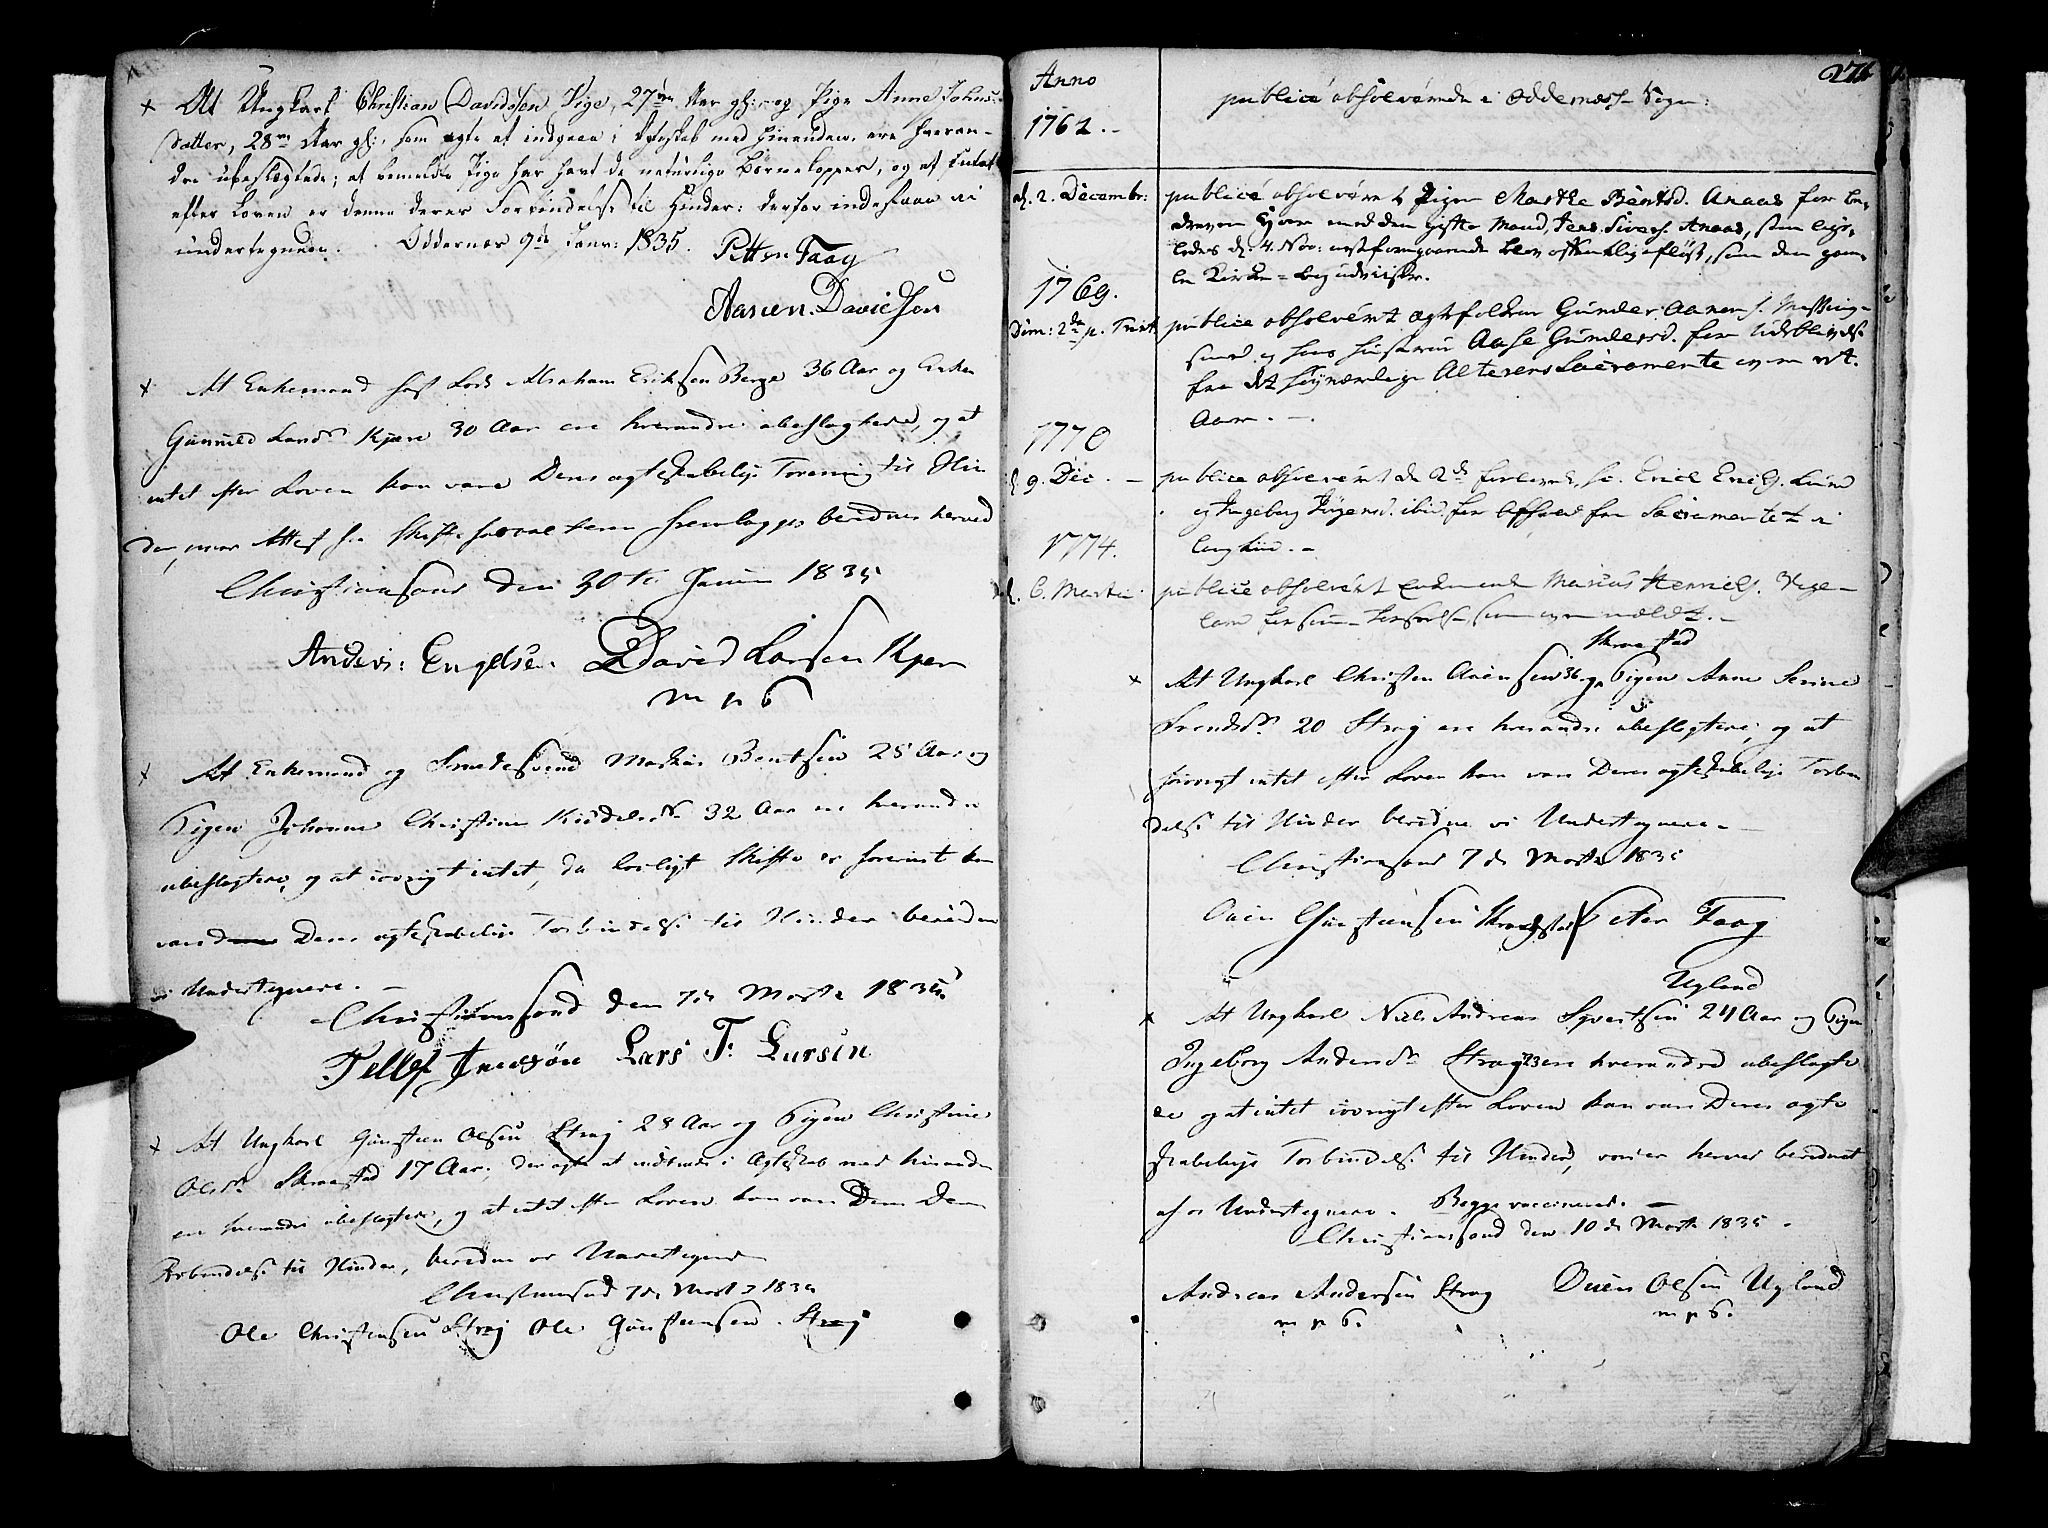 At Ungkarl Christian Davidsen Vige, 27 Aar gl: og Pige Anne Johns-
Datter, 28 Aar gl:, som agte at indgaae i Ægteskab med hinanden, ere hveran-
dre ubeslægtede; at bemeldte Pige har havt de naturlige Børnekopper, og at Intet
efter Loven er denne deres Forbindelse til Hinder: derfor indestaae vi
undertegnede. Oddernes 9de Janv: 1835.
Petter Faag
Aanen Davidson
At Enkemand Abraham Eriksen Berge 36 Aar og Enken
Gunnild Larsd. Kjære 30 Aar ere hverandre ubeslægtede, og at
intet efter Loven kan være Deres ægteskabelige Forening til Hin
der, naar Attest fra Skifteforvalteren fremlægges bevidnes herved
Christiansand den 30te Janua 1835
Anders: Engelsen. David Larsen Kjær
m p b
At Enkemand og Smedesvend Mathias Bentsen 25 Aar og
Pigen Johanne Christine 32 Aar ere hverandre
ubeslægtede, og at iøvrigt intet, da lovligt Skifte er foreviist kan
være Deres ægteskabelige Forbindelse til Hinder bevidne
vi Undertegnede. –
Christianssand den 7de Marts 1835
Tellef Lars T: Larsen
At Ungkarl Gunsteen Olsen Stray 28 Aar og Pigen Christine
Olsd. Skraastad 17 Aar, der agte at indtræde i Ægteskab med hinanden
ere hverandre ubeslægtede, og at intet efter Loven kan være Dem Deres
Forbindelse til Hinder, bevidne vi Undertegnede
Christiansand 7de Marts 1835
Ole Christensen Stray Ole Gunsteensen. Stray
Anno
1762.
publicè absolverede i Oddernæss Sogn:
276
d. 2. Decembr: publicè absolveret Pigen Marthe Bentsd. Aanas for be-
dreven Hoer med den gifte Mand, Jens Sivers. Aanas, som lige-
ledes d. 4. Nov: nestforegaaende blev offentlig afløst, som den gam-
le Kirke-bog udviser.
1769.
Dom: 2da p. Trinit. publicè absolveret ægtefolkene Gunder Aanens. Messing-
smed og hans hustrue Aase Gundersd. for Udeblivelse
fra det høyværdige Alterens Sacramente over et
Aar. –
1770
d. 9. Dec. – publicè absolveret de 2de forlovede, sc. Erich Erichs. Lund
og Ingeborg Jørgensd. ibid. for Ophold fra Sacramentet i
lang tiid. –
1774.
d. 6. Martii publicè absolveret Enkemanden Marcus Henrichs. Vige-
land for samme Forseelse som ovenmeldt. –
Skraastad
At Ungkarl Christen Aanensen 36 og Pigen Anne Serine
Svendsd. 20 Stray ere hverandre ubeslægtede, og at
forøvrigt intet efter Loven kan være Deres ægteskabelige Forbin
delse til Hinder bevidne vi Undertegnede –
Christiansand 7de Marts 1835
Christensen Skraastad Peter Faag
Ugland
At Ungkarl Niels Andreas Syvertsen 24 Aar og Pigen
Ingeborg Andersd. Stray 23 ere hverandre ubeslægte
de og at intet iøvrigt efter Loven kan være Deres ægte
skabelige Forbindelse til Hinder, vorder herved bevidnet
af os Undertegnede. Begge vaccinerede. –
Christianssand den 10de Marts 1835.
Andreas Andersen Stray Ouen Olsen Ugland
m p b. m p b.